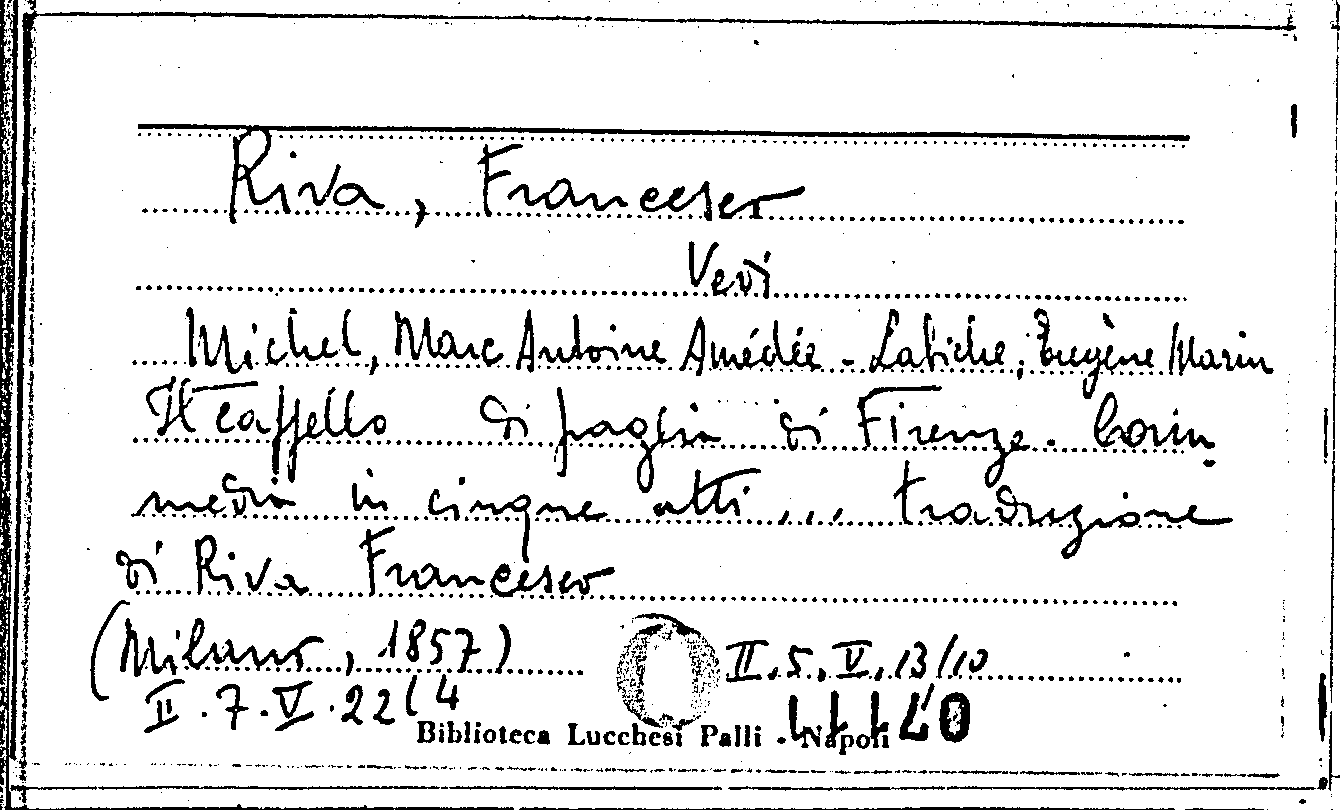 Riva, Francesco
Vedi
Michel, Marc Antoine Amédée - Labiche, Eugène Marin
Il cappello di paglia di Firenze. Com
media in cinque atti... traduzione
di Riva Francesco
(Milano, 1857)
II.5.V.13/10
II.7.V.22(4
Biblioteca Lucchesi Palli - Napoli